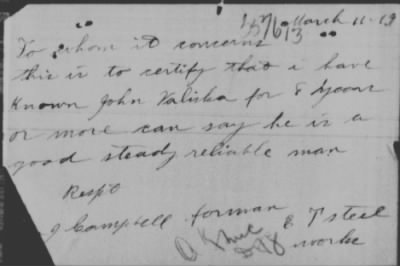 March 11-19
To whom it concerns
this is to certify that i have
Known John Valiska for 8 Years
or more can say he is a
good steady reliable man
Resp'
J Campbell forman
E T steel
works